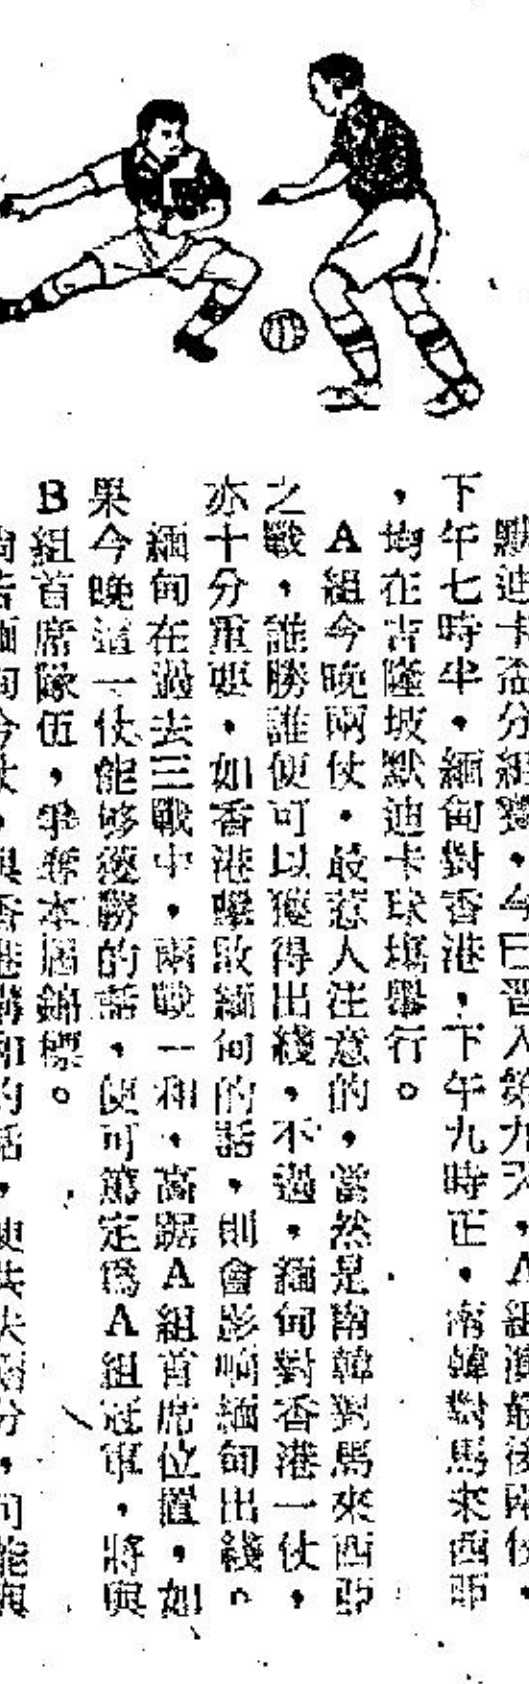 默迪卡盃分組賽，今已晋入第九天，A組演最後兩仗，
下午七時半，緬甸對香港，下午九時正，南韓對馬來西亞
，均在吉隆坡默迪卡球塲舉行。
A組今晚兩仗，最惹人注意的，當然是南韓對馬來西亞
之戰，誰勝誰便可以獲得出綫，不過，緬甸對香港一仗，
亦十分重要，如香港擊敗緬甸的話，則會影响緬甸出綫。
緬甸在過去三戰中，兩戰一和，高踞A組首席位置，如
果今晚這一仗能够獲勝的話，便可篤定爲A組冠軍，將與
B組首席隊伍，爭奪本屆錦標。